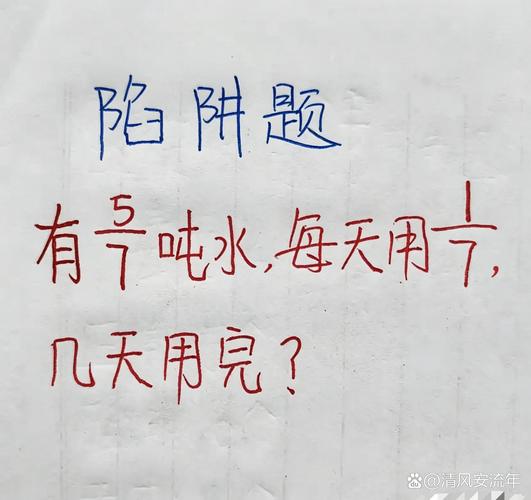 陷阱题
有5/7吨水,每天用1/7,
几天用完?
清风安流年